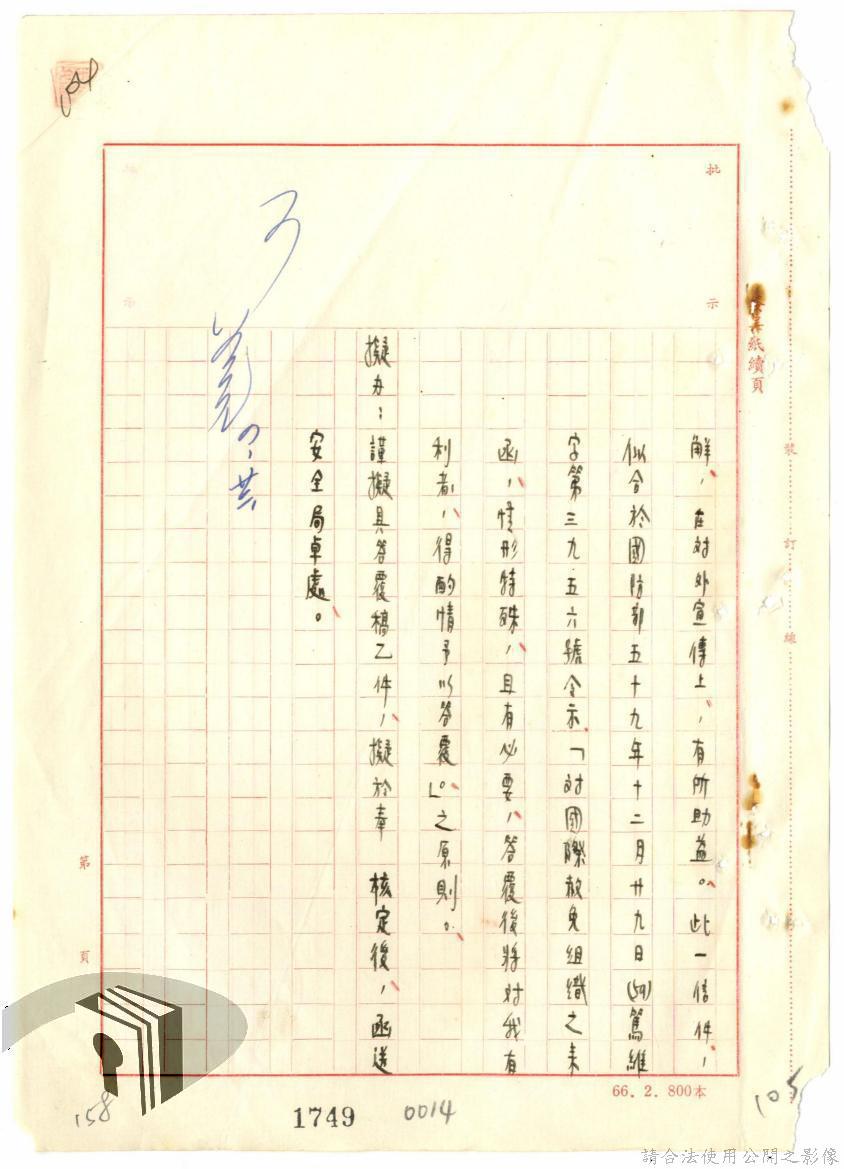 104
批
示
簽呈紙續頁
裝
訂
線
解，在对外宣傳上，有所助益。此一信件，
似合於國防部五十九年十二月廿九日(59)篤維
字第三九五六號令示「对國際赦免組織之来
函，情形特殊，且有必要，答覆後將对我有
利者，得酌情予以答覆」。之原則。
擬办：謹擬具答覆稿乙件，擬於奉　核定後，函送
安全局卓處。
可
第
頁
66. 2. 800本
105
158
1749
0014
請合法使用公開之影像